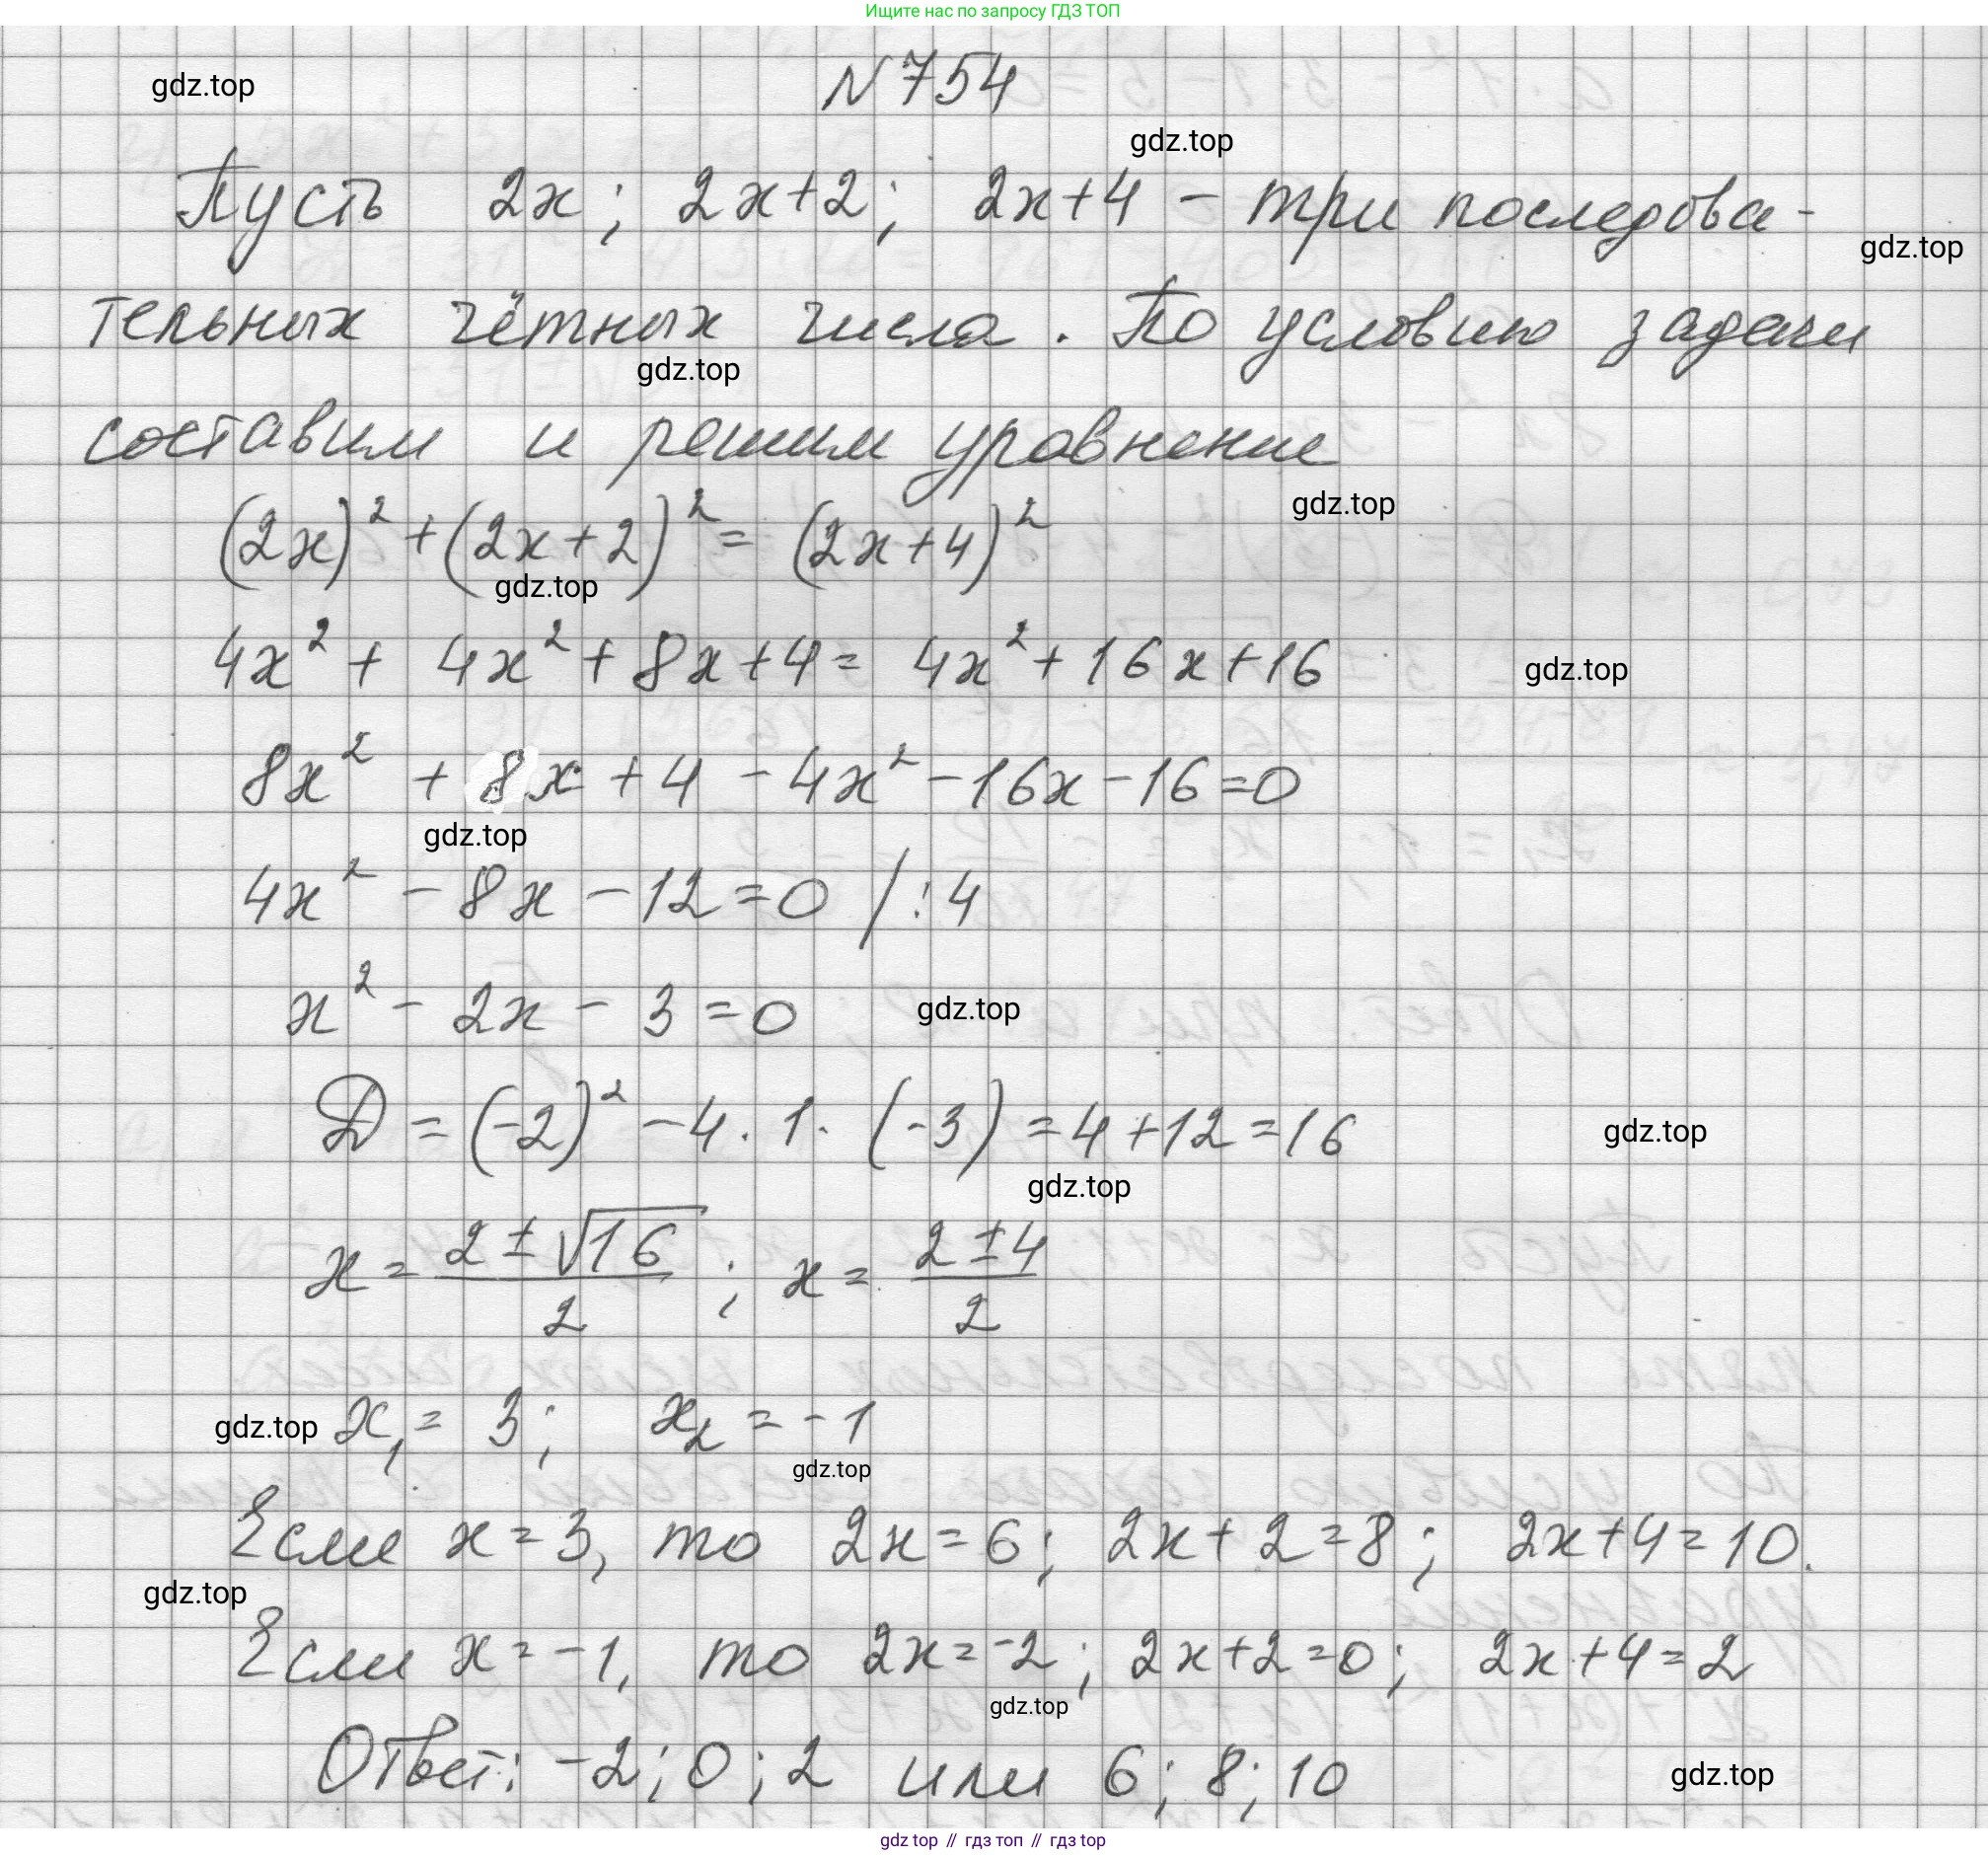 Ищите нас по запросу ГДЗ ТОП
N754
gdz.top
gdz.top
Пусть 2x; 2x+2; 2x+4 - три последова-
gdz.top
тельных чётных числа. По условию задачи
gdz.top
составим и решим уравнение
gdz.top
(2x)² + (2x+2)² = (2x+4)²
gdz.top
4x² + 4x² + 8x + 4 = 4x² + 16x + 16
gdz.top
8x² + 8x + 4 - 4x² - 16x - 16 = 0
gdz.top
4x² - 8x - 12 = 0 / :4
x² - 2x - 3 = 0
gdz.top
D = (-2)² - 4 · 1 · (-3) = 4 + 12 = 16
gdz.top
gdz.top
x = (2 ± √16)/2 ; x = (2 ± 4)/2
gdz.top
x₁ = 3; x₂ = -1
gdz.top
Если x = 3, то 2x = 6; 2x + 2 = 8; 2x + 4 = 10.
gdz.top
Если x = -1, то 2x = -2; 2x + 2 = 0; 2x + 4 = 2
gdz.top
Ответ: -2; 0; 2 или 6; 8; 10
gdz.top
gdz top // гдз топ // гдз top